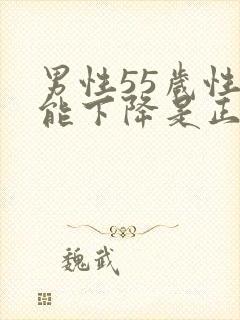 男性55歲性
能下降是正
魏武